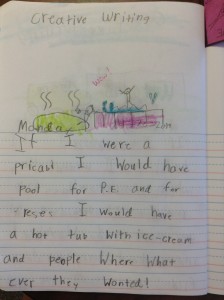 Creative Writing
wow!
If I were a
pricabl I Would have
Pool for P.E. and for
I Would have
a hot tub With ice-cream
and people Where What
ever they Wanted!